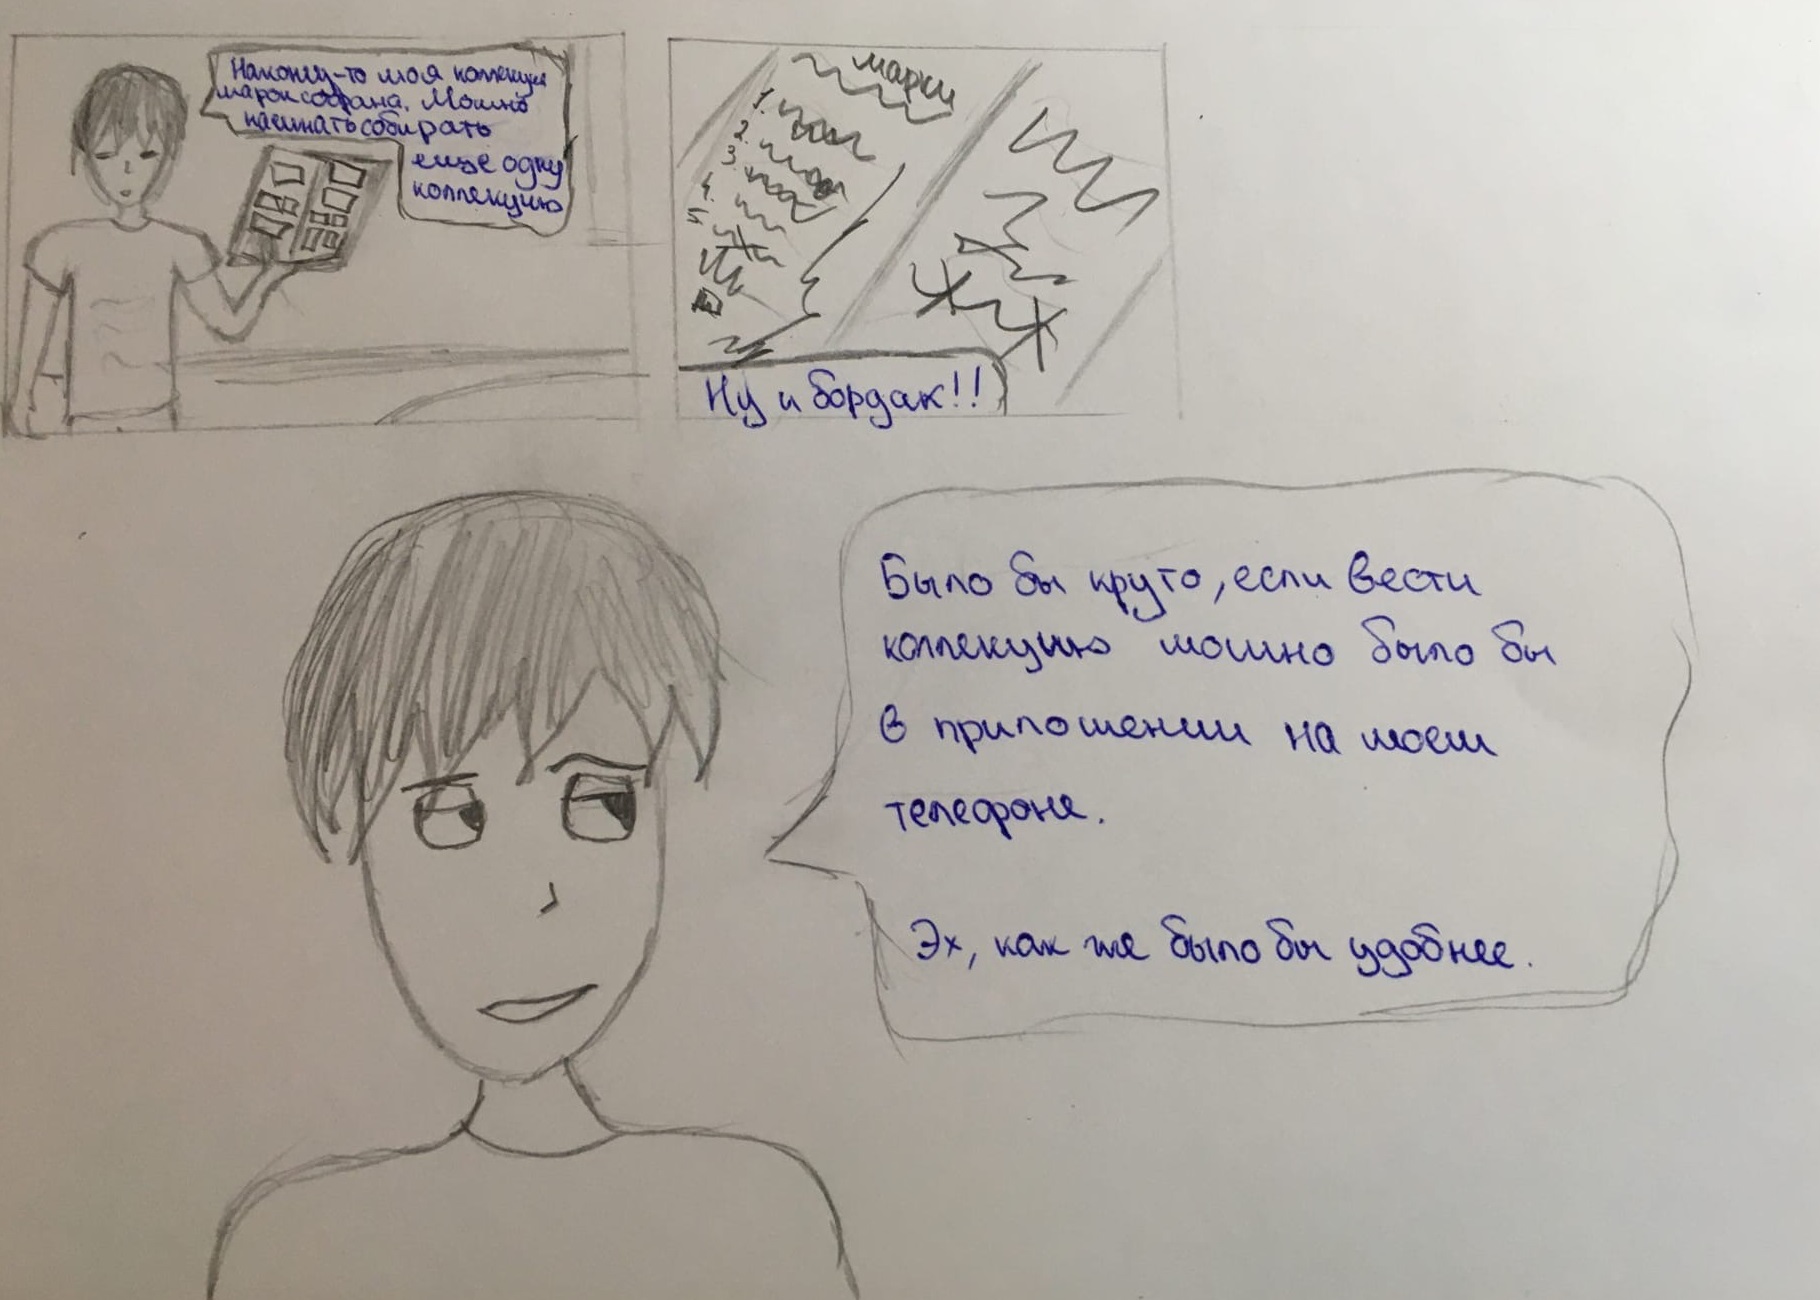 Наконец-то моя коллекция
марок собрана. Можно
начинать собирать
еще одну
коллекцию
марки
1.
2.
3.
4.
5.
Ну и бордак!!
Было бы круто, если вести
коллекцию можно было бы
в приложении на моем
телефоне.
Эх, как же было бы удобнее.